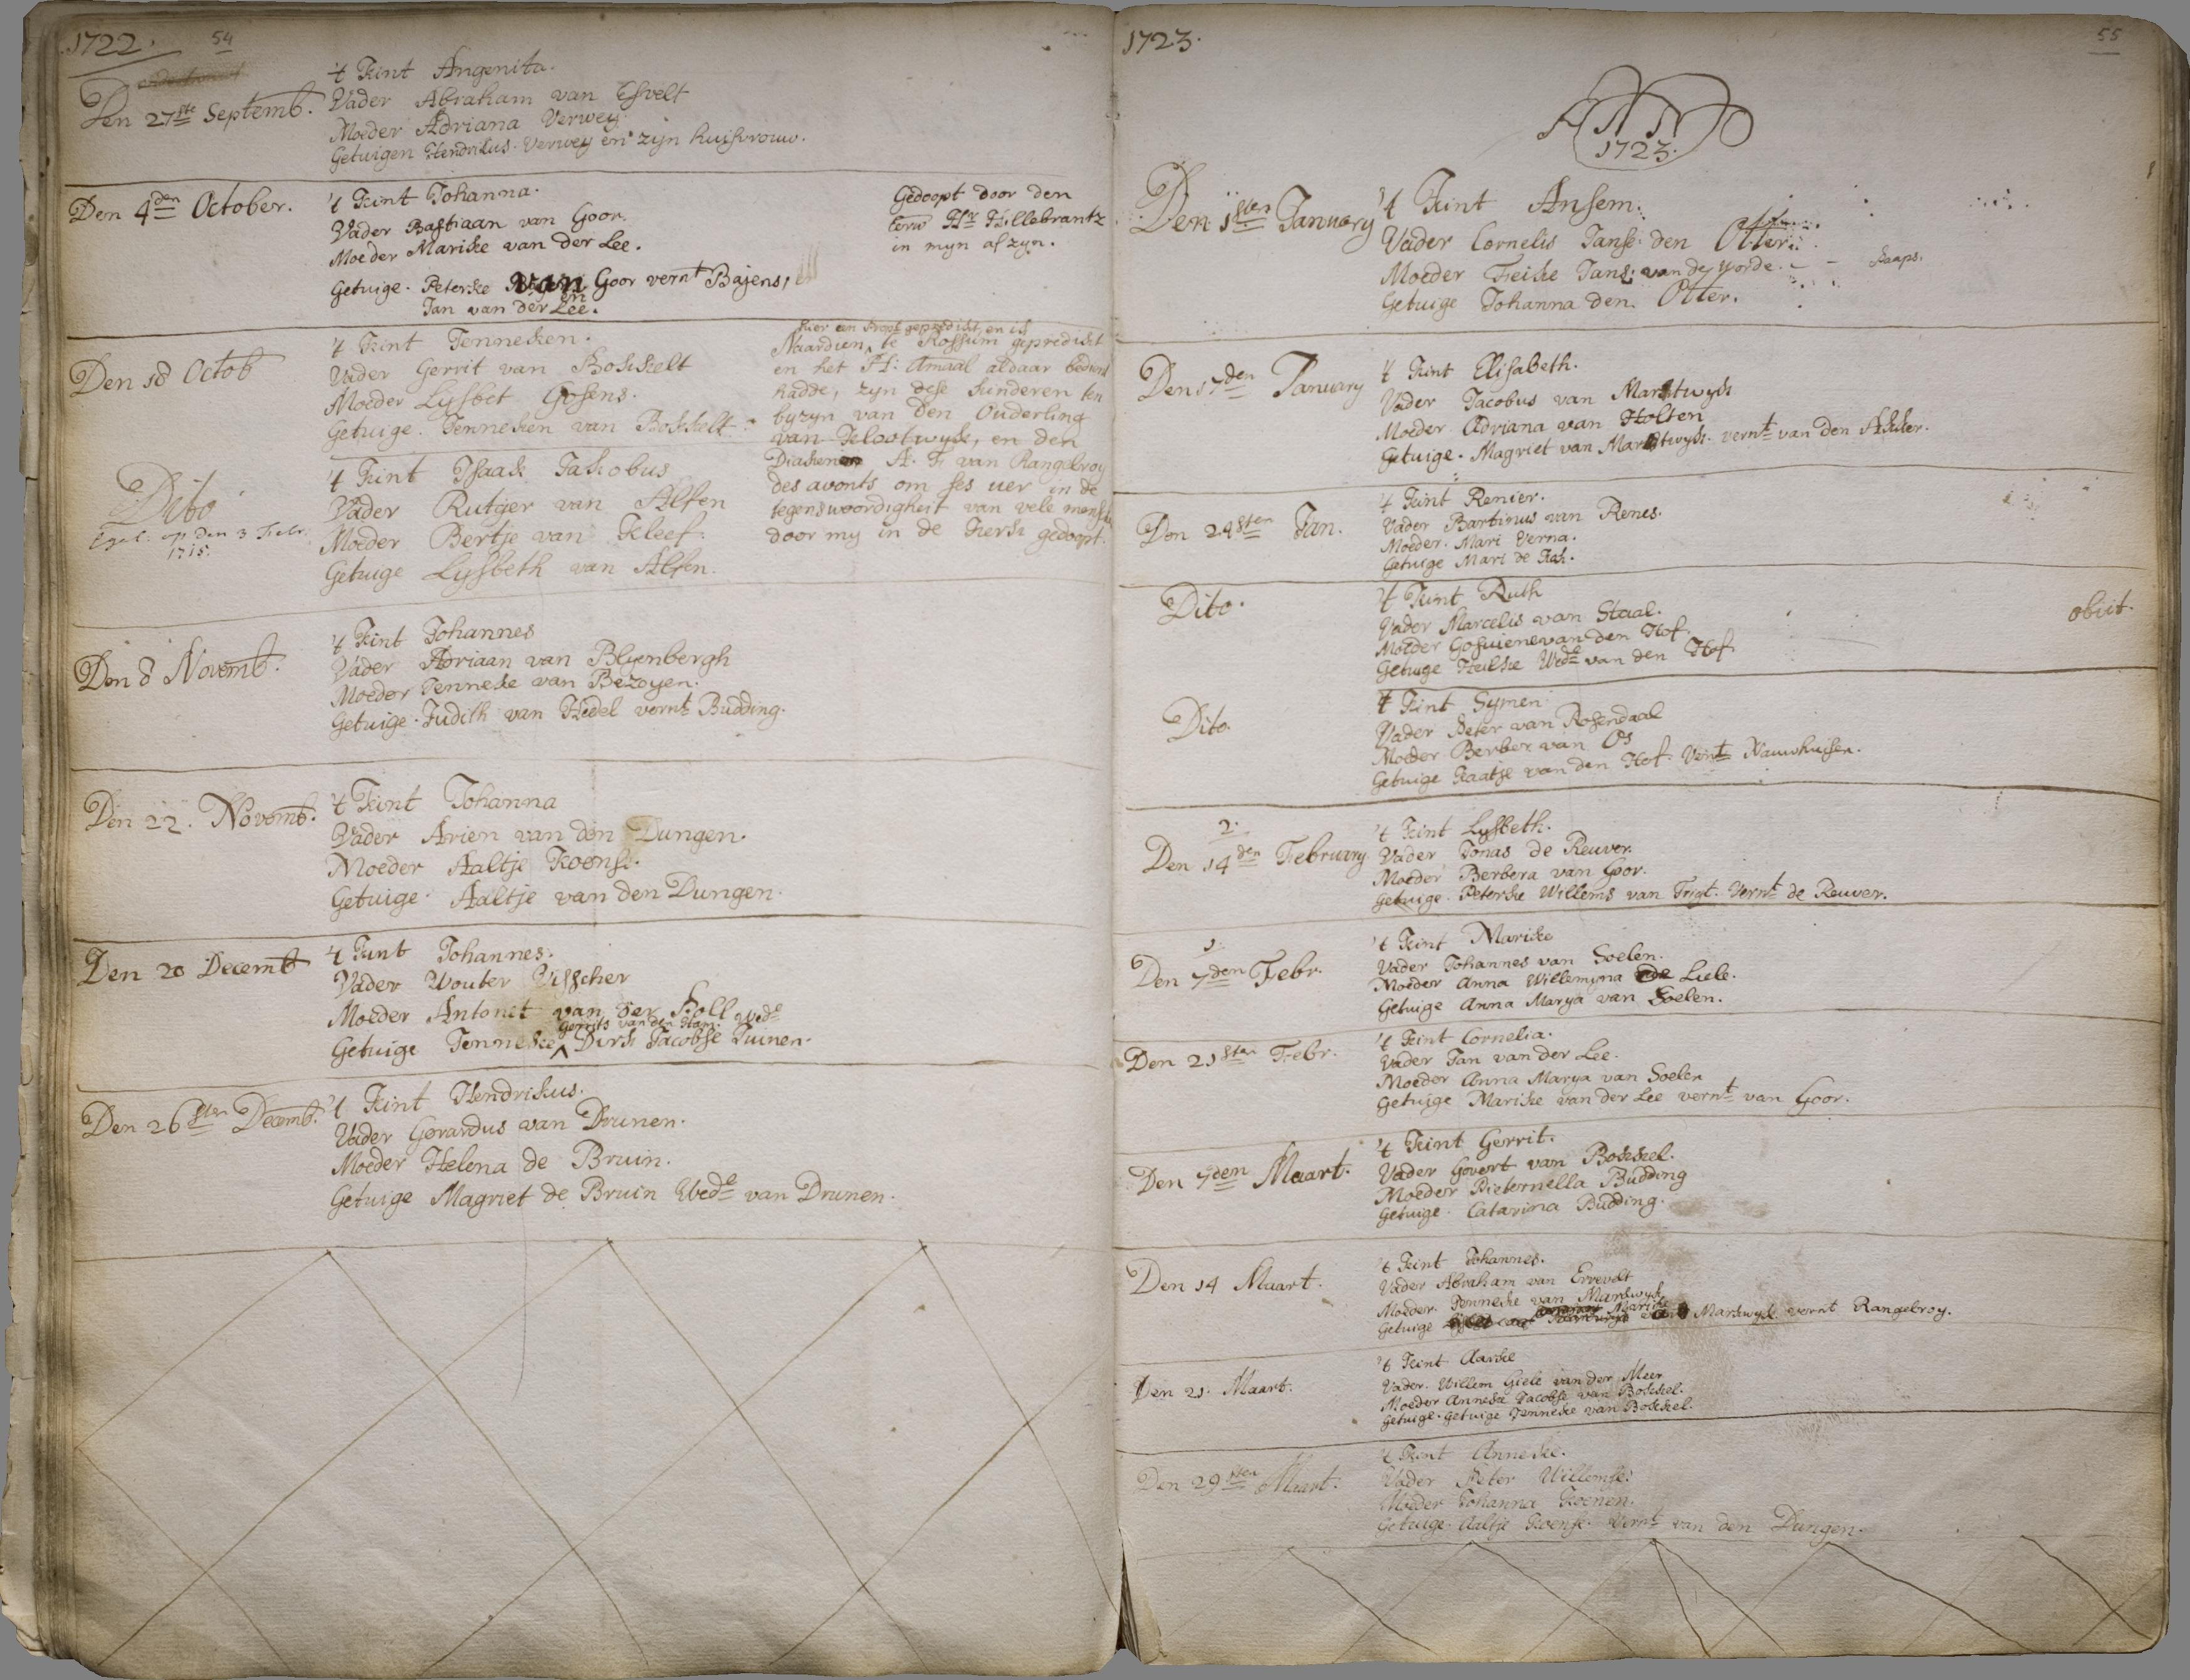 1722. 54
Den 27ste Septemb.
't Kint Angenita.
Vader Abraham van Esvelt
Moeder Adriana Verwey.
Getuigen Hendrikus Verwey en zijn huisvrouw.
Den 4den October.
't Kint Johanna.
Vader Bastiaan van Goor.
Moeder Marike van der Lee.
Getuige. Peterke van Goor vernt Bajens, en
Jan van der Lee.
Gedoopt door den
Eerw Hr Hillebrantz
in myn afzyn.
Den 18 Octob
't Kint Jenneken.
Vader Gerrit van Bokkelt
Moeder Lysbet Gosens.
Getuige. Jenneken van Bokkelt.
Dito
Egel. op den 3 Febr.
1715.
't Kint Isaak Jakobus
Vader Rutger van Alfen
Moeder Bertje van Kleef.
Getuge Lysbeth van Alfen.
hier een Proept gepredikt, en ik
Naardien te Rossum gepredikt
en het H: Amaal aldaar bedient
hadde, zyn dese kinderen ten
byzyn van den Ouderling
van Klootwyk, en den
Diaken A. F. van Rangelroy
des avonts om ses uer in de
tegenswoordigheit van vele mensch
door my in de Kerk gedoopt.
Den 8 Novemb.
't Kint Johannes
Vader Adriaan van Blyenbergh
Moeder Jenneke van Bezoyen.
Getuige. Judith van Hedel vernt Budding.
Den 22. Novemb.
't Kint Johanna
Vader Arien van den Dungen.
Moeder Aaltje Koense.
Getuige. Aaltje van den Dungen.
Den 20 Decemb
't Kint Johannes.
Vader Wouter Visscher
Moeder Antonet van der Koll wede
Gerrits van den Ham.
Getuige Jenneke Dirk Jacobse Tuinen.
Den 26sten Decemb.
't Kint Hendrikus.
Vader Gerardus van Drunen.
Moeder Helena de Bruin.
Getuige Magriet de Bruin Wede van Drunen.
1723. 55
ANNO
1723.
Den 1sten January
't Kint Ansem.
Vader Cornelis Janse den Otter.
Moeder Feike Jans: van de Worde. Paaps.
Getuige Johanna den Otter.
Den 17den January
't Kint Elisabeth.
Vader Jacobus van Marktwyk
Moeder Adriana van Holten
Getuige. Magriet van Marktwyk. vernt van den Akker.
Den 24sten Jan.
't Kint Renier.
Vader Bartinus van Renes.
Moeder. Mari Verna.
Getuige Mari de Kok.
Dito.
't Kint Ruth
Vader Marcelis van Staal.
Moeder Gosuiene van den Hof.
Getuge Heilke Wede van den Hof.
obiit.
Dito.
't Kint Symen
Vader Peter van Rosendaal
Moeder Berber van Os
Getuige Kaatje van den Hof. Vernt Nauwhuisen.
2.
Den 14den February
't Kint Lysbeth.
Vader Jonas de Reuver.
Moeder Berbera van Goor.
Getuige. Peterke Willems van Trigt. Vernt de Reuver.
1.
Den 7den Febr.
't Kint Marike
Vader Johannes van Soelen.
Moeder Anna Willemyna de Lule.
Getuige Anna Marya van Soelen.
Den 21sten Febr.
't Kint Cornelia.
Vader Jan van der Lee.
Moeder Anna Marya van Soelen
Getuige Marike van der Lee vernt van Goor.
Den 7den Maart.
't Kint Gerrit.
Vader Govert van Bokkel.
Moeder Pieternella Budding
Getuige. Catarina Budding.
Den 14 Maart.
't Kint Johannes.
Vader Abraham van Ervevelt
Moeder. Jenneke van Markwyk
Getuige Marike van Markwyk vernt Rangelroy.
Den 21. Maart.
't Kint Aarike
Vader. Willem Giele van der Meer
Moeder Anneke Jacobse van Bokkel.
Getuige. Getuige Jenneke van Bokkel.
Den 29sten Maart.
't Kint Anneke.
Vader Peter Willemse.
Moeder Johanna Koenen.
Getuige. Aaltje Koense. Vernt van den Dungen.